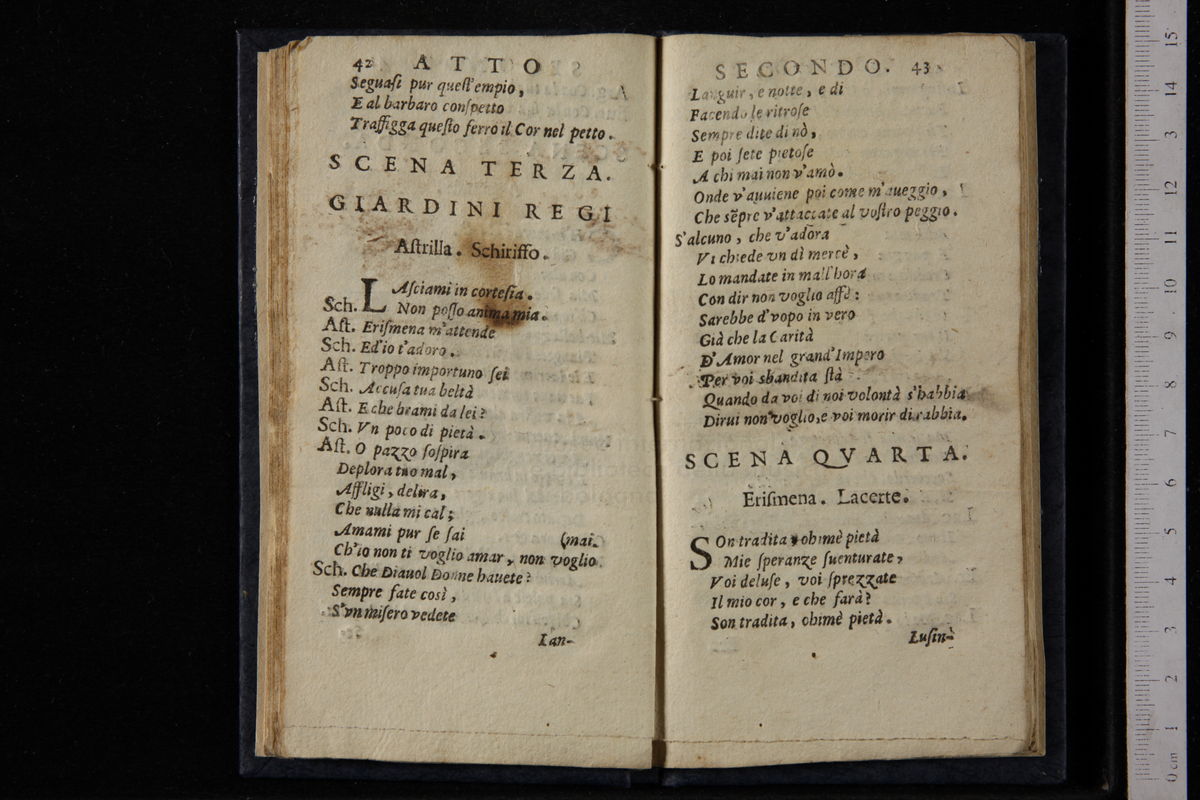 42 ATTO
Seguaſi pur queſt'empio,
E al barbaro conſpetto
Traffigga queſto ferro il Cor nel petto.
SCENA TERZA.
GIARDINI REGI
Aſtrilla. Schiriffo.
LAſciami in corteſia.
Sch. Non poſſo anima mia.
Aſt. Eriſmena m'attende
Sch. Ed'io t'adoro.
Aſt. Troppo importuno ſei
Sch. Accuſa tua beltà
Aſt. E che brami da lei?
Sch. Vn poco di pietà.
Aſt. O pazzo ſoſpira
Deplora tuo mal,
Affligi, delira,
Che nulla mi cal;
Amami pur ſe ſai (mai.
Ch'io non ti voglio amar, non voglio
Sch. Che Diauol Donne hauete?
Sempre fate così,
S'vn miſero vedete
Lan-
SECONDO. 43
Languir, e notte, e di
Facendo le ritroſe
Sempre dite di nò,
E poi ſete pietoſe
A chi mai non v'amò.
Onde v'auuiene poi come m'aueggio,
Che sẽpre v'attaccate al voſtro peggio.
S'alcuno, che v'adora
Vi chiede vn dì mercè,
Lo mandate in mall'hora
Con dir non voglio affè:
Sarebbe d'vopo in vero
Già che la Carità
D'Amor nel grand'Impero
Per voi sbandita ſtà
Quando da voi di noi volontà s'habbia
Dirui non voglio, e voi morir di rabbia.
SCENA QVARTA.
Eriſmena. Lacerte.
SOn tradita, ohimè pietà
Mie ſperanze ſuenturate,
Voi deluſe, voi ſprezzate
Il mio cor, e che farà?
Son tradita, ohimè pietà.
Luſin-
15
14
13
12
11
10
9
8
7
6
5
4
3
2
1
0 cm